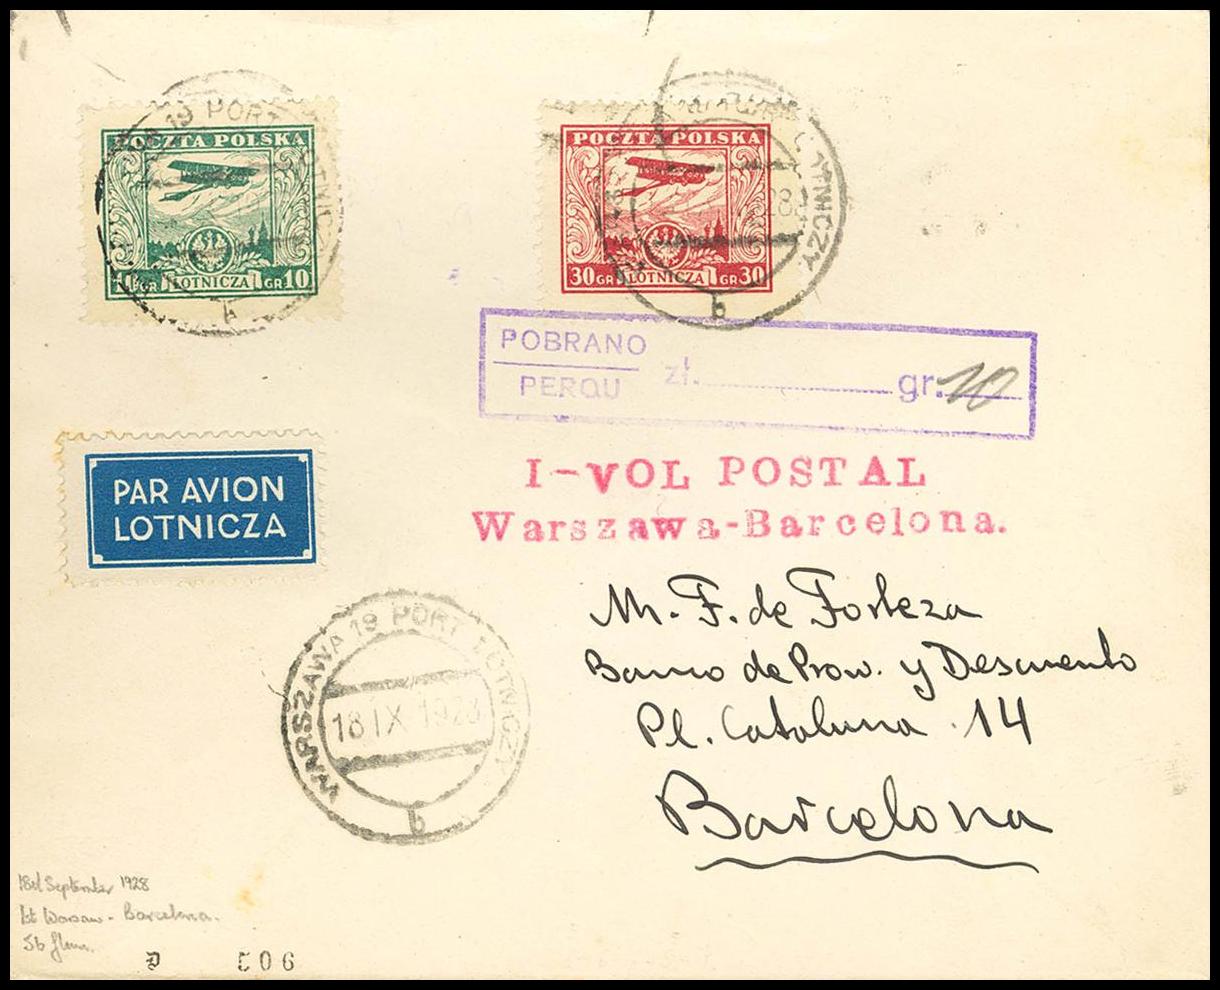 WARSZAWA 19 PORT LOTNICZY
POCZTA POLSKA
10 GR LOTNICZA GR 10
b
WARSZAWA LOTNICZY
POCZTA POLSKA
28
30 GR LOTNICZA GR 30
b
POBRANO
PERÇU
zł. gr. 10
PAR AVION
LOTNICZA
I-VOL POSTAL
Warszawa-Barcelona.
M. F. de Forteza
Banco de Prov. y Descuento
Pl. Cataluna 14
Barcelona
WARSZAWA 19 PORT LOTNICZY
18 IX 1928
b
18th September 1928
1st Warsaw - Barcelona.
506